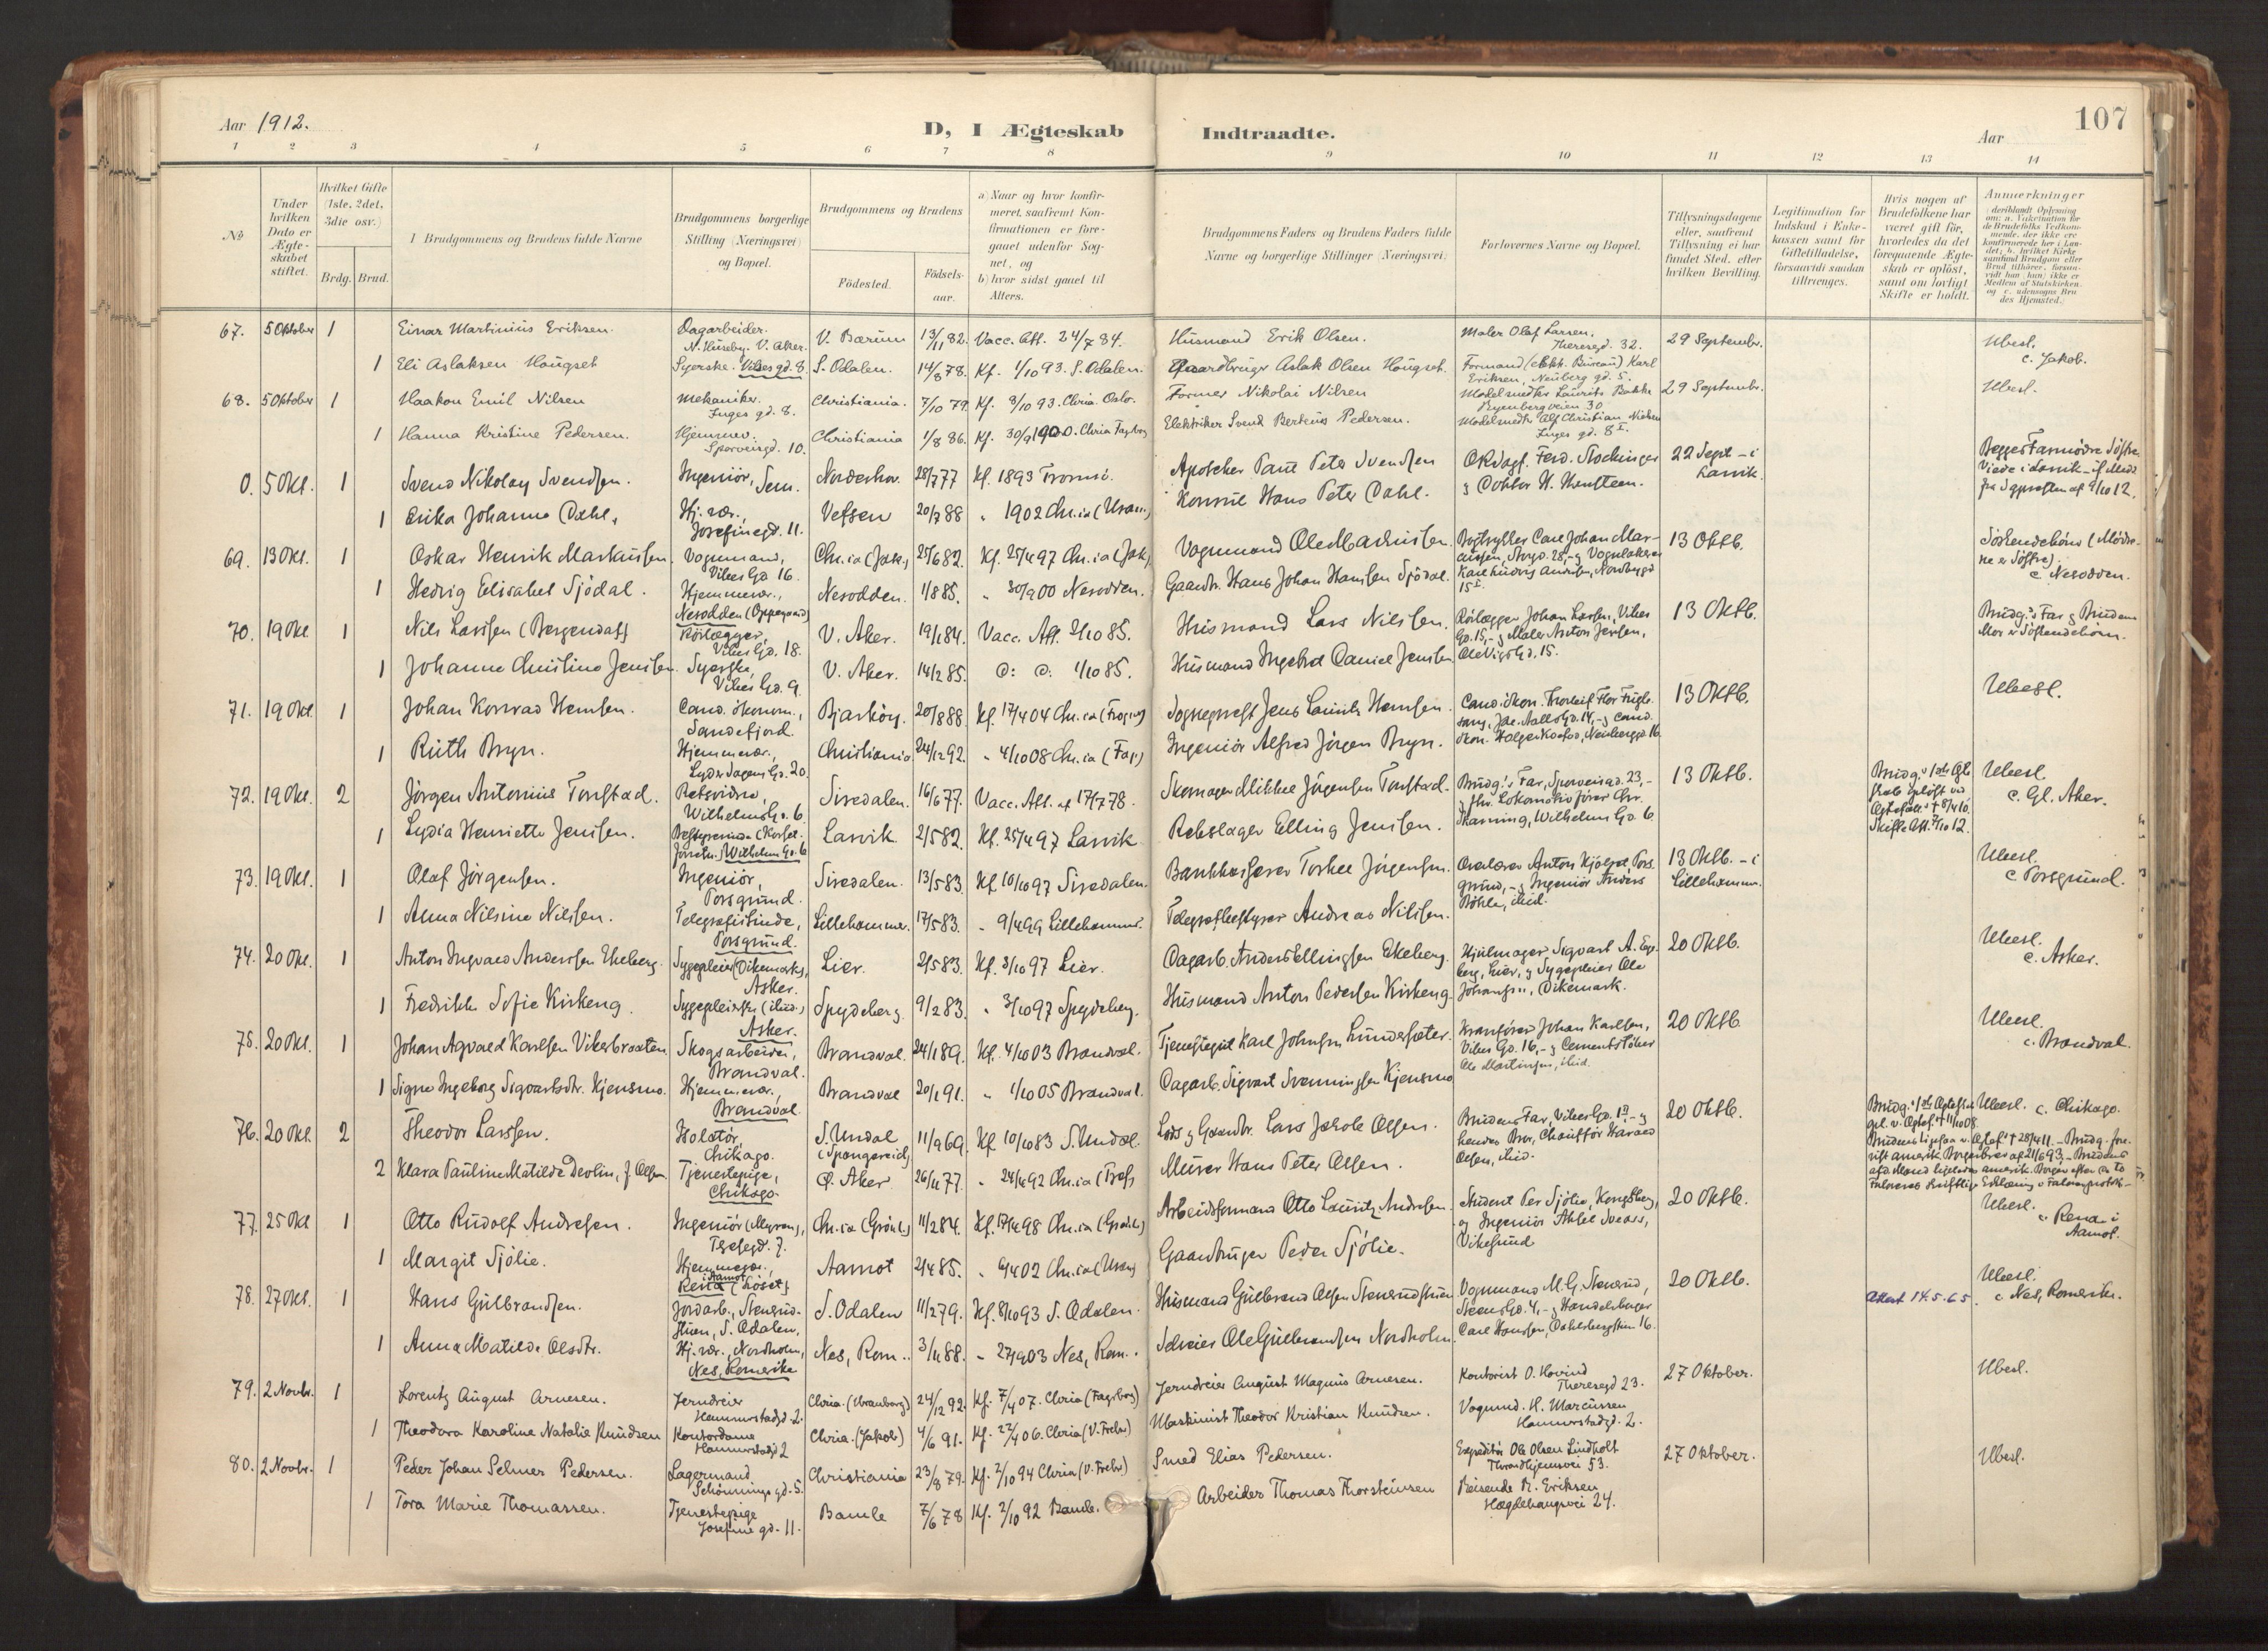 Aar 1912.
D, I Ægteskab Indtraadte.
Aar
107
1 2 3 4 5 6 7 8 9 10 11 12 13 14
No
Under hvilken Dato er Ægteskabet stiftet.
Hvilket Gifte (1ste, 2det, 3die osv.)
Brdg. Brud.
Brudgommens og Brudens fulde Navne
Brudgommens borgerlige Stilling (Næringsvei) og Bopæl.
Brudgommens og Brudens
Fødested.
Fødselsaar.
a) Naar og hvor konfirmeret, saafremt Konfirmationen er foregaaet udenfor Sognet, og
b) hvor sidst gaaet til Alters.
Brudgommens Faders og Brudens Faders fulde Navne og borgerlige Stillinger (Næringsvei)
Forlovernes Navne og Bopæl.
Tillysningsdagene eller, saafremt Tillysning ei har fundet Sted, efter hvilken Bevilling.
Legitimation for Indskud i Enkekassen samt for Giftetilladelse, forsaavidt saadan tiltrænges.
Hvis nogen af Brudefolkene har været gift før, hvorledes da det foregaaende Ægteskab er opløst, samt om lovligt Skifte er holdt.
Anmerkninger
67. 5 Oktober 1 Einar Martinius Eriksen. Dagarbeider. N. Huseby. V. Aker. V. Bærum 13/11 82. Vacc. Att. 24/7 84. Husmand Erik Olsen. Maler Olaf Larsen. Theresegd. 32. 29 Septembr. Ubesl. c. Jakob.
1 Eli Aslaksen Haugset Syerske. Vibes gd. 8. S. Odalen. 14/8 78. Kf. 1/10 93. S. Odalen. Gaardbruger Aslak Olsen Haugset. Formand Karl Eriksen, Neuberg gd. 5.
68. 5 Oktober 1 Haakon Emil Nilsen Mekaniker. Inges gd. 8. Christiania. 7/10 79. Kf. 8/10 93. Chria. Oslo. Former Nikolai Nilsen Modelsnedker Laurits Bakke 30 29 Septembr. Ubesl.
1 Hanna Kristine Pedersen. Hjemmev. Sporveisgd. 10. Christiania 1/8 86. Kf. 30/9 1900. Chria Fagerborg Elektriker Svend Berteus Pedersen. Modelsnedk. Alf Christian Nielsen Inges gd. 8 I.
0. 5 Okt. 1 Svend Nikolay Svendsen. Ingeniør, Sem. Norderhov. 28/7 77 Kf. 1893 Tromsø. Apotheker Paul Peter Svendsen Ferd. Stochinger 22 Sept - i Larvik.
1 Erika Johanne Dahl. Hj. vær., Josefinegd. 11. Vefsen 20/7 88 " 1902 Chr.ia (Uran.) Konsul Hans Peter Dahl. & Doktor H. Thensteen.
69. 13 Okt. 1 Oskar Henrik Markussen. Vognmand, Vibes Gd. 16. Chr.ia (Jak.) 25/6 82. Kf. 25/4 97 Chr.ia (Jak.) Vognmand Ole Markussen. Carl Johan Marcussen 13 Oktb. Søskendebørn (Mødrene er Søstre).
1 Hedvig Elisabet Sjødal. Hjemmevær., Nesodden (Oppegaard) Nesodden. 1/8 85. " 30/9 00 Nesodden. Gaardbr. Hans Johan Hansen Sjødal. Karl Ludvig Andersen, c. Nesodden.
70. 19 Okt 1 Nils Larssen (Bergendal) Rørlægger, Vibes Gd. 18. V. Aker. 19/1 84. Vacc. Att. 2/10 85. Husmand Lars Nilssen. Rørlægger Johan Larssen, Vibes Gd. 15, - & Maler Anton Jensen, Ole Vigs Gd. 15. 13 Oktb. Brudg.'s Far & Brudens Mor er Søskendebørn.
1 Johanne Christine Jenssen Syerske, Vibes Gd. 9. V. Aker. 14/2 85. d: d: 1/10 85. Husmand Ingebret Daniel Jenssen
71. 19 Okt. 1 Johan Konrad Hemsen. Cand. økonom., Sandefjord. Bjarkøy. 20/8 88. Kf. 17/4 04 Chr.ia (Frogner) Sogneprest Jens Laurits Hemsen. 13 Oktb. Ubesl.
1 Ruth Bryn. Hjemmevær., Lyder Sagens Gd. 20. Christiania 24/12 92. " 4/10 08 Chr.ia (Fag.) Ingeniør Alfred Jørgen Bryn. Holger Koefod, Neuberggd. 16.
72. 19 Okt. 2 Jørgen Antonius Tonstad. Betsvidne, Wilhelms Gd. 6. Siredalen. 16/6 77. Vacc. Att. af 17/7 78. Skomager Mikkel Jørgensen Tonstad. Brudg.'s Far, Sporveisgd. 23, - & fhv. Lokomotivfører Chr. Skarning, Wilhelms Gd. 6 13 Oktb. Ubesl. c. Gl. Aker.
1 Lydia Henriette Jenssen. Wilhelms Gd. 6 Larvik. 2/5 82. Kf. 25/4 97 Larvik. Rebslager Elling Jenssen. Skifte Att. 7/10 12.
73. 19 Okt. 1 Olaf Jørgensen. Ingeniør, Porsgrund. Siredalen. 13/5 83. Kf. 10/10 97 Siredalen. Bankkasserer Torkel Jørgensen. Anton Kjølset, Porsgrund, - & Ingeniør Anders Bøhle, ibid. 13 Oktb. - i Lillehammer. Ubesl. c. Porsgrund.
1 Anna Nilsine Nilssen. Telegrafistinde, Porsgrund. Lillehammer. 17/5 83. " 9/4 99 Lillehammer. Telegrafbestyrer Andreas Nilssen.
74. 20 Okt. 1 Anton Ingvald Anderssen Ekeberg. Sygepleier (Dikemark), Asker. Lier. 2/5 83. Kf. 3/10 97 Lier. Dagarb. Anders Ellingsen Ekeberg. Hjulmager Sigvart A. Egeberg, Lier, & Sygepleier Ole Johansen, Dikemark. 20 Oktb. Ubesl. c. Asker.
1 Fredrikke Sofie Kirkeng. Sygepleierske (ibid.) Asker. Spydeberg. 9/2 83. " 3/10 97 Spydeberg. Husmand Anton Pedersen Kirkeng.
75. 20 Okt. 1 Johan Agvald Karlsen Vikerbraaten. Skogsarbeider, Brandval. Brandval. 24/1 89. Kf. 4/10 03 Brandval. Karl Johnsen Lundesæter. Kranfører Johan Karlsen, Vibes Gd. 16, - & Cementstøber Ole Martinsen, ibid. 20 Oktb. Ubesl. c. Brandval.
1 Signe Ingeborg Sigvartsdtr. Kjensmo. Hjemmevær., Brandval. Brandval 20/1 91. " 1/10 05 Brandval. Dagarb. Sigvart Svenningsen Kjensmo
76. 20 Okt. 2 Theodor Larssen. Chikago. S. Undal (Spangereid) 11/9 69. Kf. 10/10 83 S. Undal. Lods & Gaardbr. Lars Jakob Olsen. Brudens Far, Vibes Gd. & hendes Bror, Chauffør Harald Olsen, ibid. 20 Oktb. Ubesl. c. Chikago.
2 Klara Pauline Matilde Devlin, f. Olsen. Tjenestepige, Chikago. Ø. Aker. 26/4 77. " 24/4 92 Chr.ia (Trefs) Murer Hans Peter Olsen.
77. 25 Okt 1 Otto Rudolf Andresen. Ingeniør (Myren), Chr.ia (Grønl.) 11/2 84. Kf. 17/4 98 Chr.ia (Grønl.) Arbeidsformand Otto Lauritz Andresen. Student Per Sjølie, Kongsberg, og Ingeniør 20 Oktb. Ubesl. c. Rena i Aamot.
1 Margit Sjølie. Hjemmevær., Rena i Aamot Aamot 2/4 85. " 6/4 02 Chr.ia (Uran.) Gaardbruger Peder Sjølie.
78. 27 Okt. 1 Hans Gulbrandsen. Jordarb., Stenrudstuen, S. Odalen, S. Odalen 11/2 79. Kf. 8/10 93 S. Odalen. Husmand Gulbrand Olsen Stenrudstuen Vognmand M. G. Stenrud, Steens Gd. 4, - & Handelsbager Carl Hanssen, Dahlsbergstien 16. 20 Oktb. Attest 14.5.65. Ubesl. c. Nes, Romerike.
1 Anna Matilde Olsdtr. Hj. vær., Nordholm, Nes, Romerike Nes, Rom.. 3/11 88. " 27/9 03 Nes, Rom.. Selveier Ole Gulbrandsen Nordholm.
79. 2 Novbr. 1 Lorentz August Arnesen. Jerndreier Hammerstadgd. 2. Chria. (Uranborg) 24/12 92. Kf. 7/4 07. Chria (Fagerborg) Jerndreier August Magnus Arnesen. Kontorist O. Hovind Theresegd 23. 27 Oktober. Ubesl.
1 Theodora Karoline Natalie Knudsen Kontordame Hammerstadgd 2 Chria. (Jakob) 4/6 91. Kf. 22/4 06. Chria (V. Freder) Maskinist Theodor Kristian Knudsen. Vognmd. H. Marcussen Hammerstadgd. 2.
80. 2 Novbr. 1 Peder Johan Selmer Pedersen. Lagermand Schønnings gd. 5. Christiania 23/8 79. Kf. 2/10 94 Chria (V. Freder) Smed Elias Pedersen. Expeditør Ole Olsen Lindholt Throndhjemsvei 53. 27 Oktober. Ubesl.
1 Tora Marie Thomassen. Tjenestepige Josefine gd. 11. Bamle 7/6 78 Kf. 2/10 92 Bamle. Arbeider Thomas Thorsteinsen Reisende R. Eriksen Hægdehaugsvei 24.